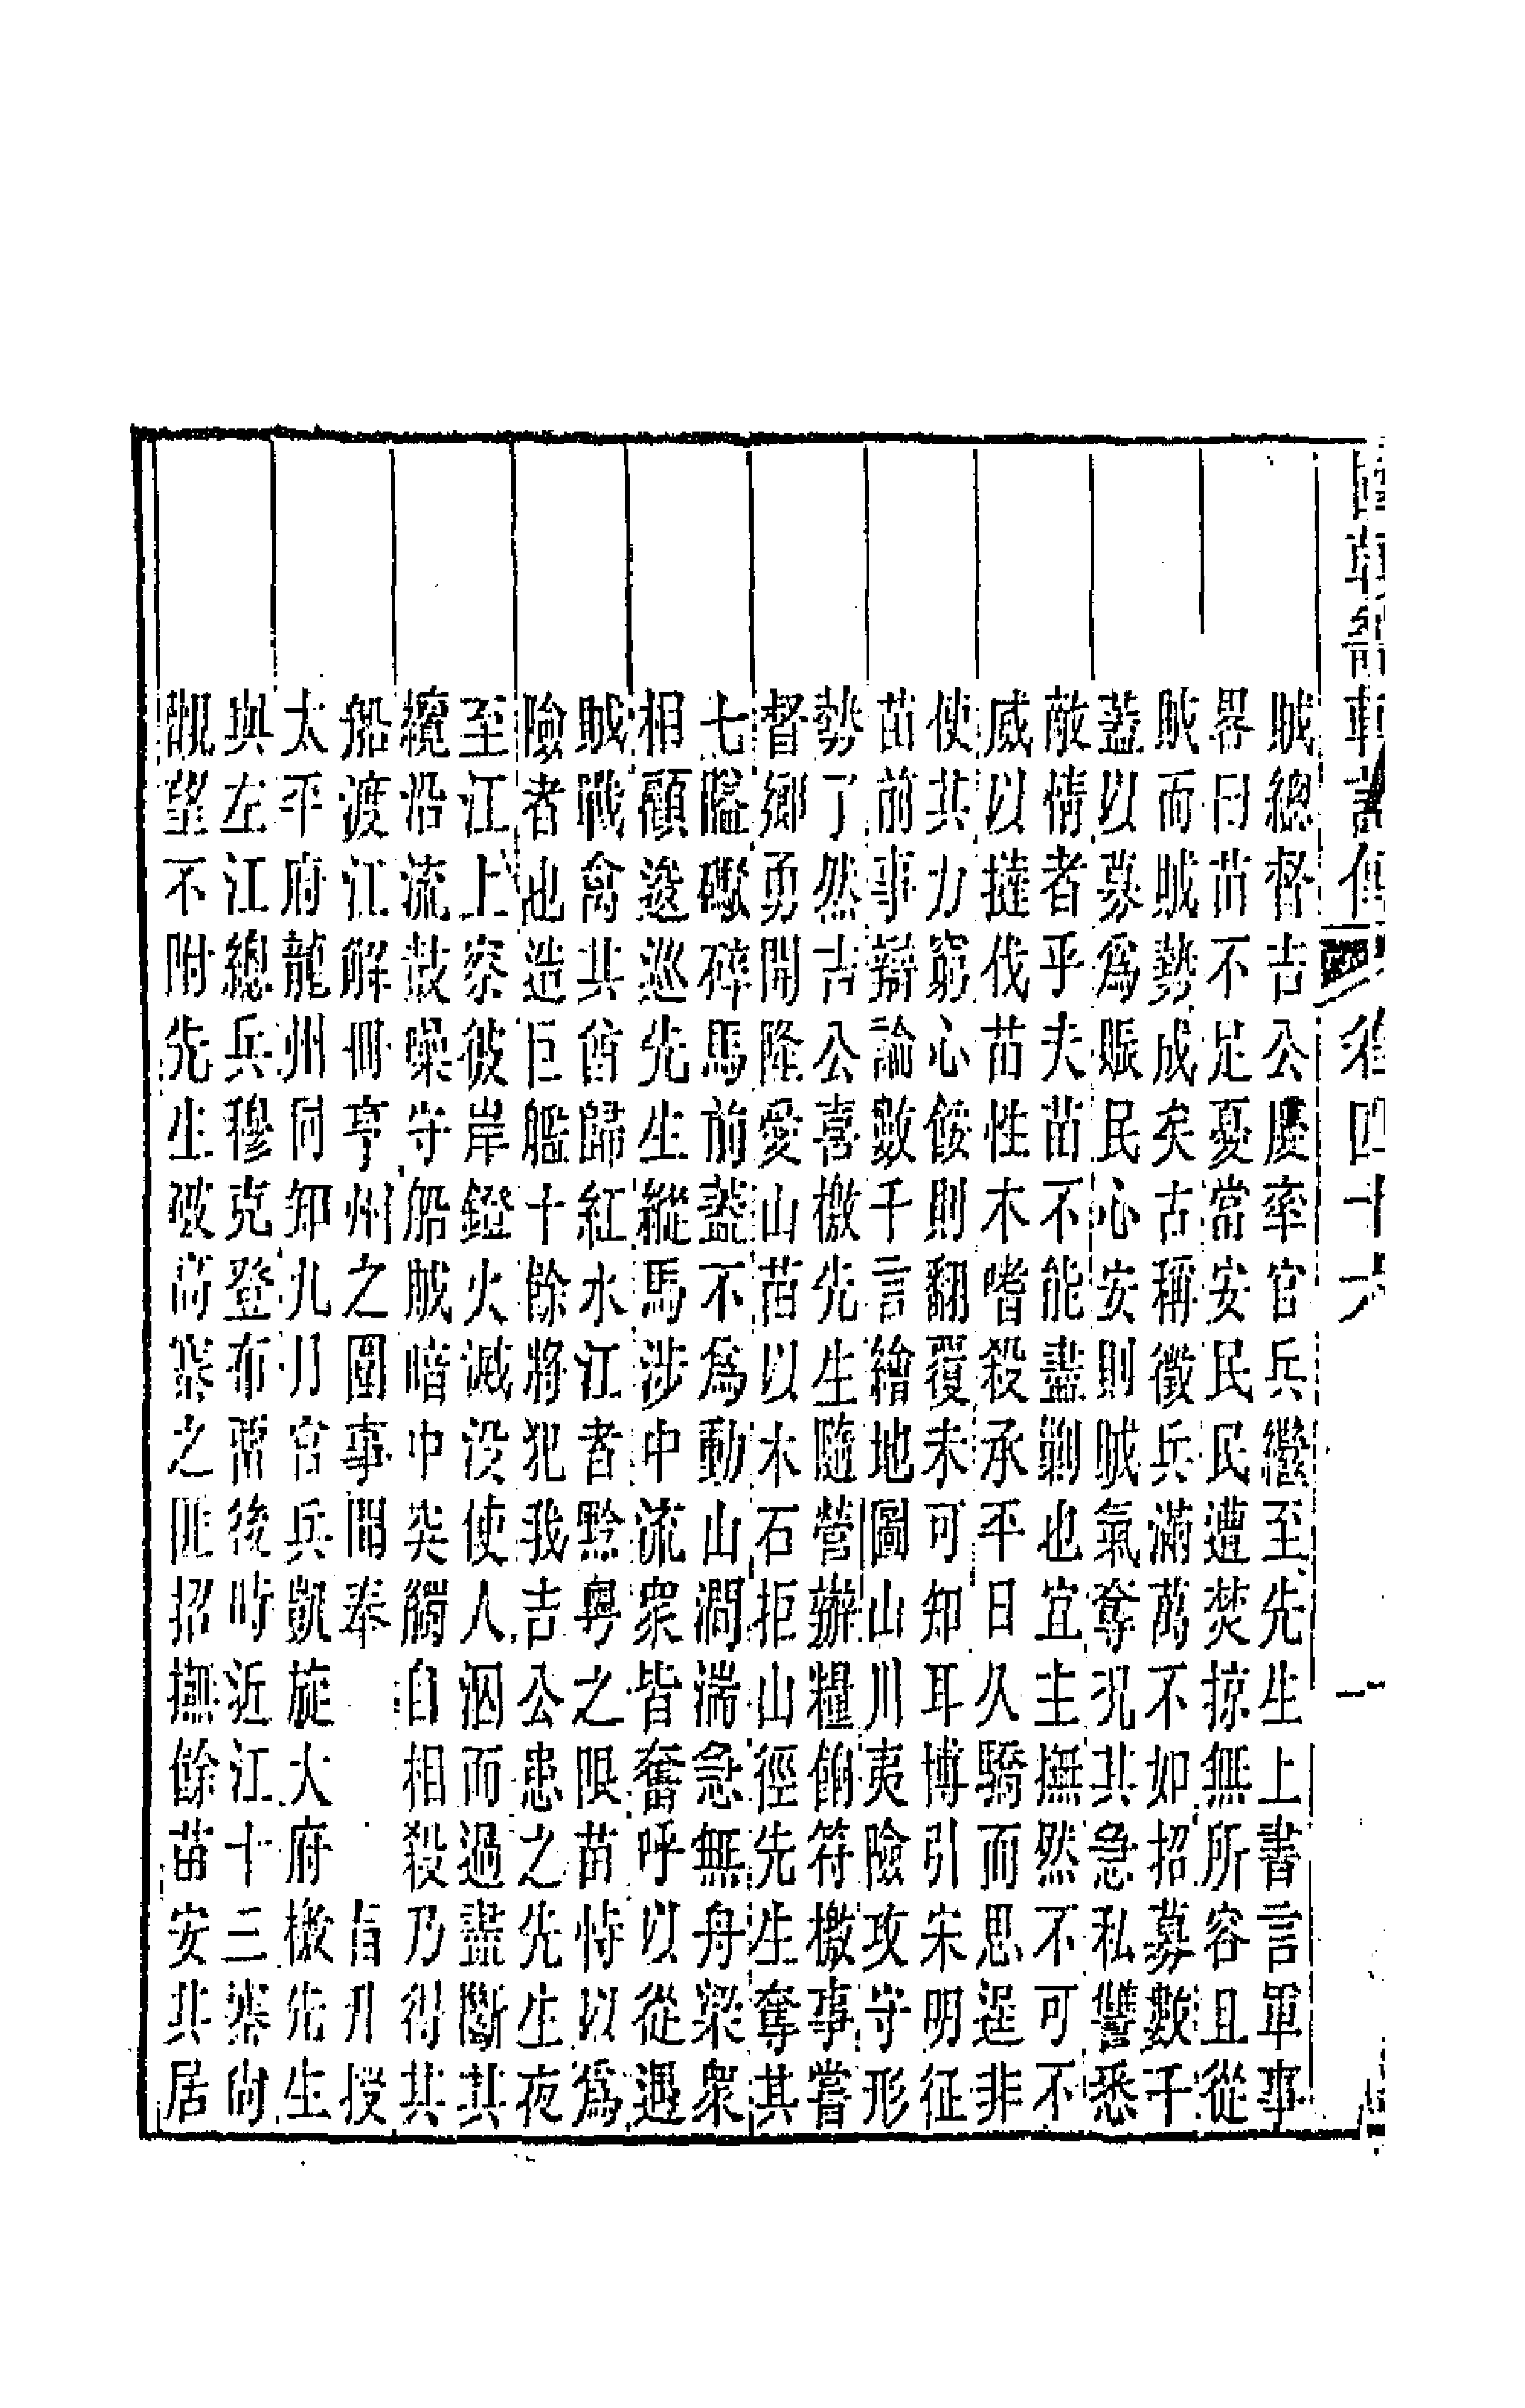 賊總督吉公慶率官兵繼至先生上書言軍事
畧曰苗不足憂常安民民遭焚掠無所容且從
賊而賊勢成矣古稱徵兵滿萬不如招募數千
蓋以募爲賑民心安則賊氣奪況其急私讐悉
敵情者乎夫苗不能盡剿也宜主撫然不可不
威以撻伐苗性木嗜殺承平日久驕而思逞非
使其力窮心餒則翻覆未可知耳博引宋明征
苗前事辯論數千言繪地圖山川夷險攻守形
勢了然吉公喜檄先生隨營辦糧餉符檄事嘗
督鄉勇開隆愛山苗以木石拒山徑先生奪其
七隘礮碎馬前蓋不爲動山澗湍急無舟梁眾
相顧逡巡先生縱馬涉中流眾皆奮呼以從遇
賊戰禽其酋歸紅水江者黔粵之限苗恃以爲
險者也造巨艦十餘將犯我吉公患之先生夜
至江上察彼岸鐙火滅没使人泅而過盡斷其
纜沿流鼓噪守船賊暗中突觸自相殺乃得其
船渡江解冊亨州之圍事聞奉 旨升授
太平府龍州同知九月官兵凱旋大府檄先生
與左江總兵穆克登布畱後時近江十三寨尚
觀望不附先生破高寨之匪招撫餘苗安其居
國朝耆 傳 卷四十六 一